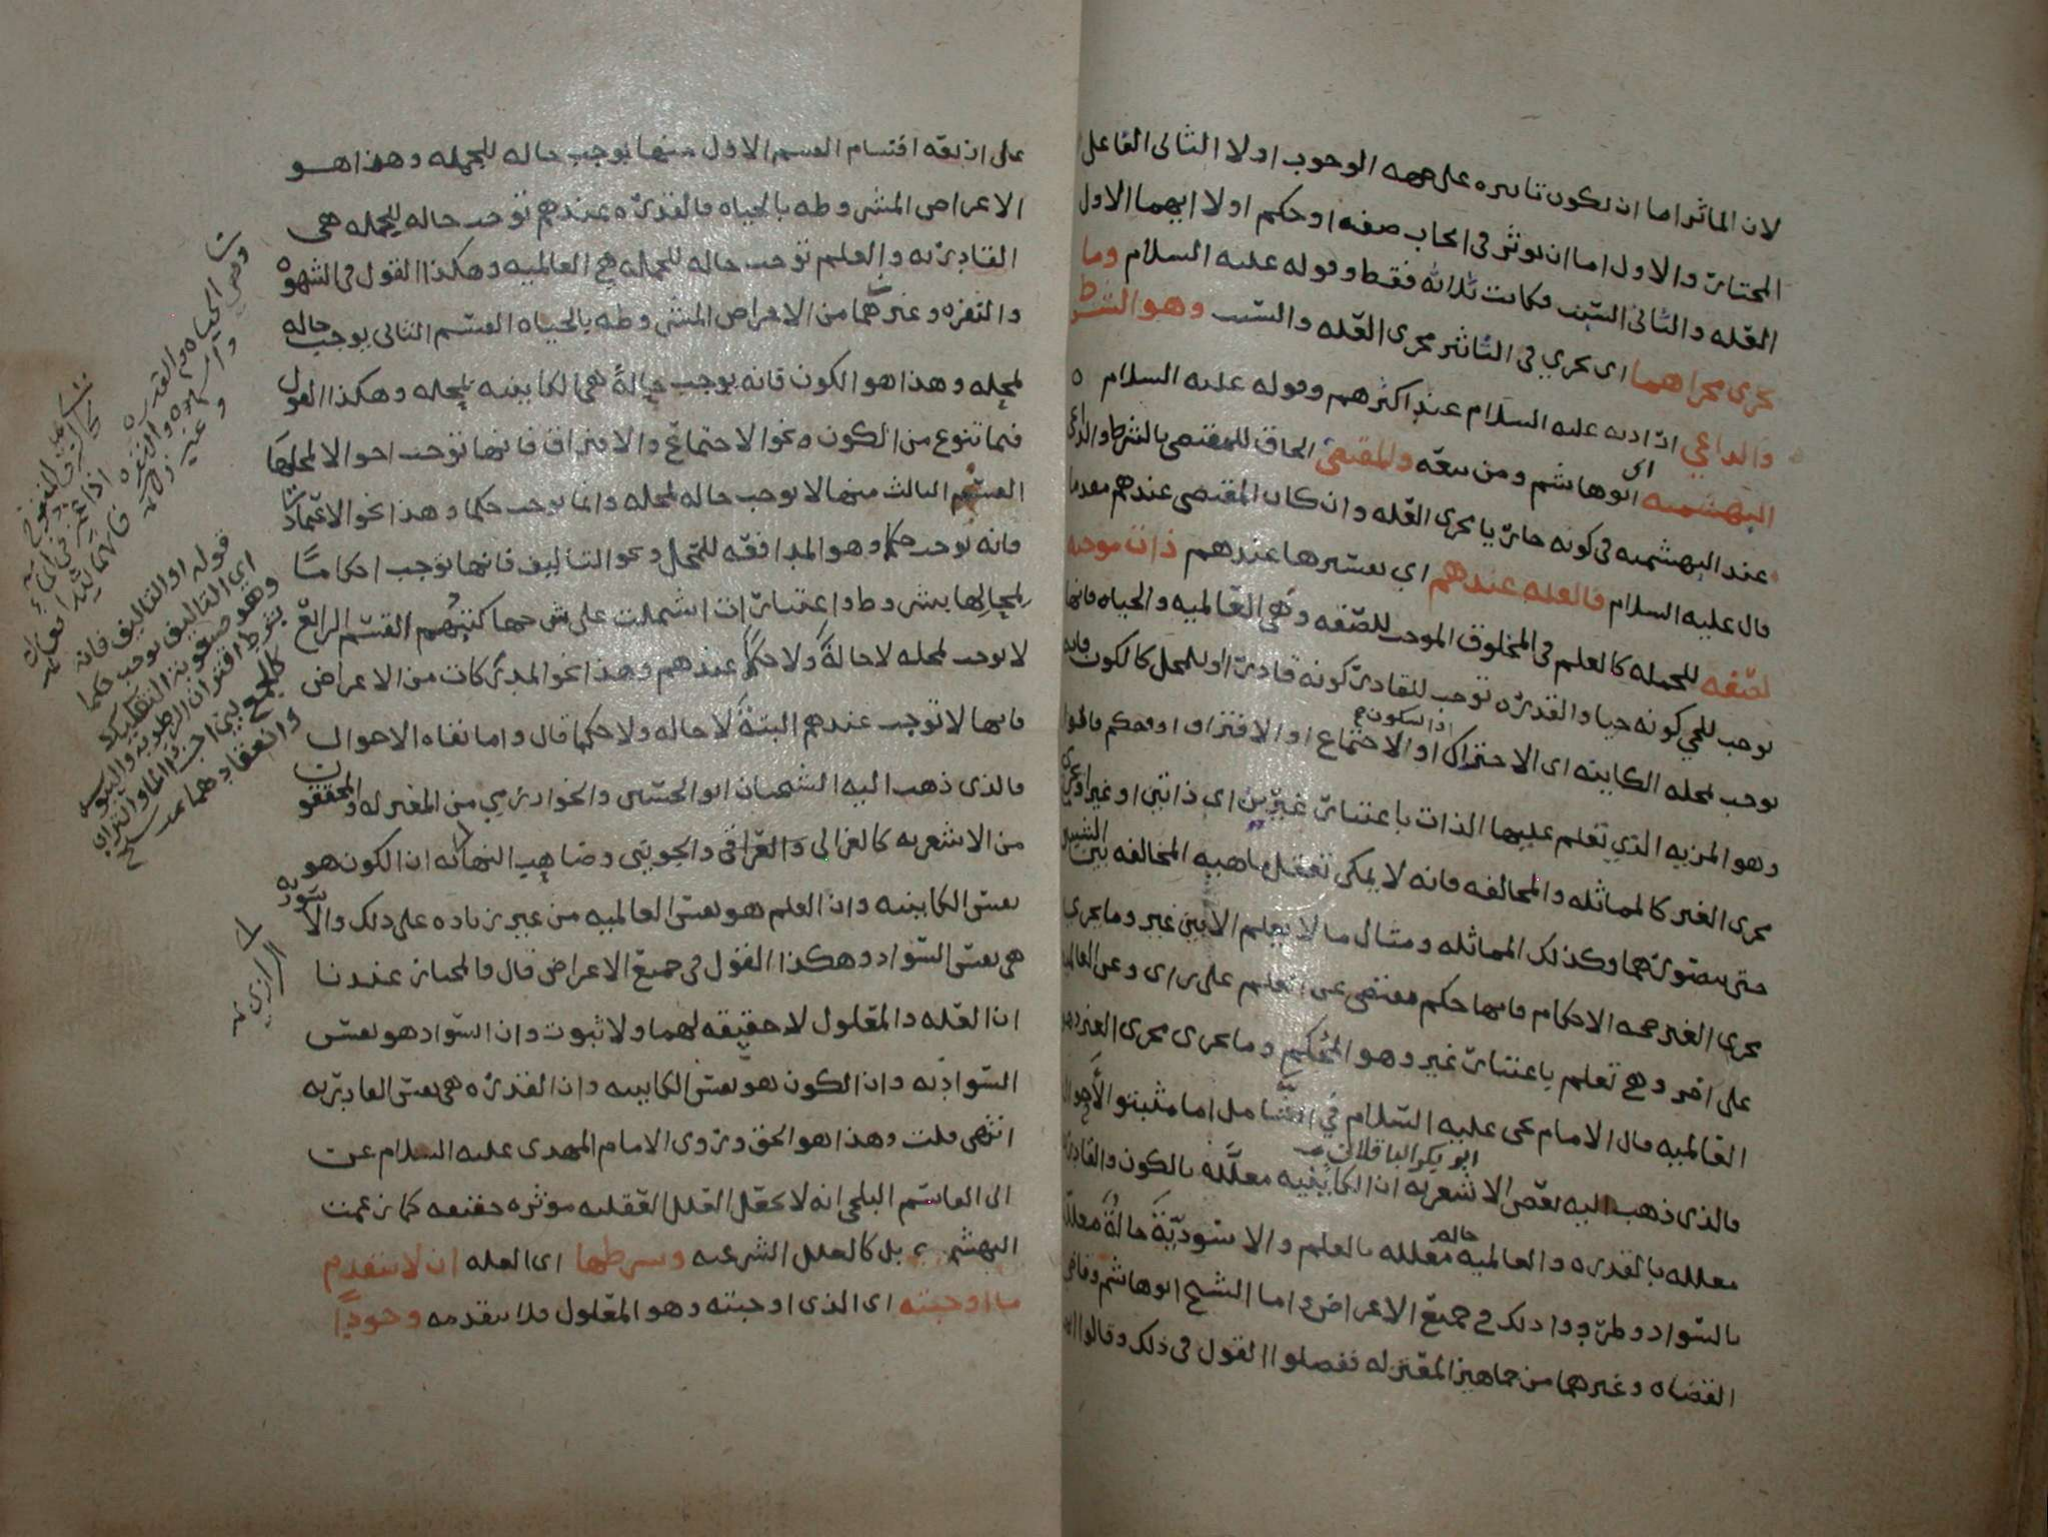 لان الماثر اما ان يكون تاثيره على جهه الوجوب اولا الثانى الفاعل
المختار والاول اما ان يوثر فى ايجاب صفه او حكم اولا ايهما الاول
العله والثانى السبب فكانت ثلاثه فقط وقوله عليه السلام وما
يجرى مجراهما اى يجري فى التاثير مجرى العله والسبب وهو الشرط
والداعي اراد به عليه السلام عند اكثرهم وقوله عليه السلام
البهشميه اى ابو هاشم ومن تبعه والمقتضى الحاق للمقتضى بالشرط والداعى
عند البهشميه فى كونه جاريا مجرى العله وان كان المقتضى عندهم
قال عليه السلام فالعله عندهم اي تفسيرها عندهم ذات موجبه
لصفه للجمله كالعلم فى المخلوق الموجب للصفه وهى العالميه والحياه فانها
توجب للحي كونه حيا والقدره توجب للقادر كونه قادرا او للمحل كالكون فانه
يوجب لمحله الكاينه اى الاحتراك او السكون او الاجتماع او الافتراق او لحكم
وهو المزيه الذي تعلم عليها الذات باعتبار غيرين اى ذاتين او غير
مجرى الغير كالمماثله والمخالفه فانه لا يمكن تعقل ماهيه المخالفه بين الشيئين
حتى يتصورهما وكذلك المماثله ومثال ما لا يعلم الا بين غير وما يجري
مجرى الغير صحه الاحكام فانها حكم مقتضى عن العلم على راى وعن العالميه
على اخر وهي تعلم باعتبار غير وهو المحكم وما يجرى مجرى الغير
العالميه قال الامام يحى عليه السلام في الشامل اما مثبتو الاحوال
فالذى ذهب اليه بعض الاشعريه ابو بكر الباقلانى ان الكاينيه معلله بالكون والقادريه
معلله بالقدره والعالميه حاله معلله بالعلم والاسوديه حاله معلله
بالسواد وطردوا ذلك في جميع الاعراض واما الشيخ ابو هاشم وقاضى
القضاه وغيرهما من جماهير المعتزله ففصلوا القول فى ذلك وقالوا
على اربعه اقسام القسم الاول منها يوجب حاله للجمله وهذا هو
الاعراض المشروطه بالحياه فالقدره عندهم توجب حاله للجمله هى
القادريه والعلم توجب حاله للجمله هي العالميه وهكذا القول فى الشهوه
والنفره وغيرهما من الاعراض المشروطه بالحياه القسم الثانى يوجب حاله
لمحله وهذا هو الكون فانه يوجب حالةً هى الكاينيه لمحله وهكذا القول
فيما تنوع من الكون ونحو الاجتماع والافتراق فانها توجب احوالا لمحلها
القسم الثالث منها لا يوجب حاله لمحله وانما يوجب حكما وهذا نحو الاعتمادات
فانه يوجب حكما وهو المدافعه للمحل ونحو التاليف فانها توجب احكاما
لمحالها بشروط واعتبارات اشتملت على شرحها كتبهم القسم الرابع
لا يوجب لمحله لا حالةً ولا حكمًا عندهم وهذا نحو المدركات من الاعراض
فانها لا توجب عندهم البتة لا حاله ولا حكما قال واما نفاه الاحوال
فالذى ذهب اليه الشيخان ابو الحسين والخوارزمي من المعتزله والمحققون
من الاشعريه كالغزالى والعراقى والجوينى وصاحب النهايه ان الكون هو
نفس الكاينيه وان العلم هو نفس العالميه من غير زياده على ذلك والاسوديه
هى نفس السواد وهكذا القول فى جميع الاعراض قال والمختار عندنا
ان العله والمعلول لا حقيقه لهما ولا ثبوت وان السواد هو نفس
السواديه وان الكون هو نفس الكاينيه وان القدره هى نفس القادريه
انتهى قلت وهذا هو الحق وروى الامام المهدى عليه السلام عن
ابى القاسم البلخى انه لا يجعل العلل العقليه موثره حقيقه كما زعمت
البهشميه بل كالعلل الشرعيه وشرطها اى العله ان لا تتقدم
ما اوجبته اى الذى اوجبته وهو المعلول فلا تتقدمه وجودًا
قوله او التاليف فانه
اى التاليف يوجب حكما
وهو صعوبة التفكيك
بشرط اقتران الرطوبه واليبوسه
كالجمع بين اجزاء الماء والتراب
وانعقادهما
الرازي